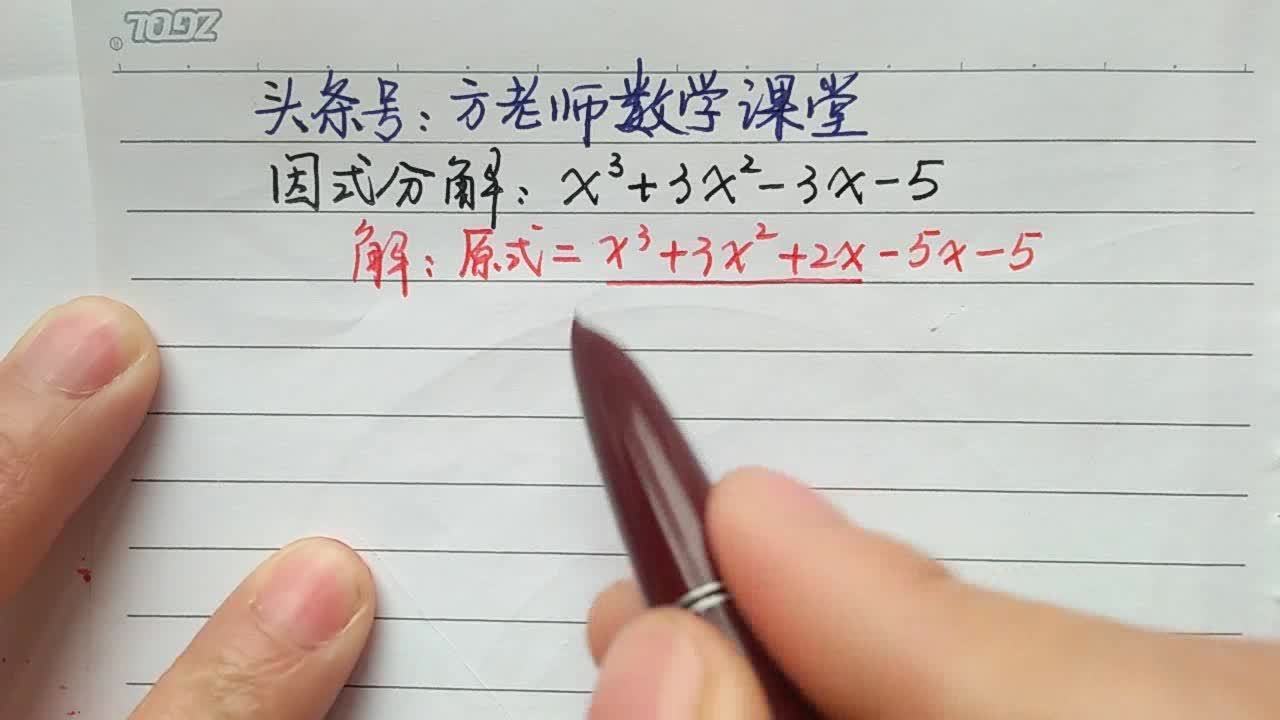 头条号：方老师数学课堂
因式分解：x³+3x²-3x-5
解：原式=x³+3x²+2x-5x-5